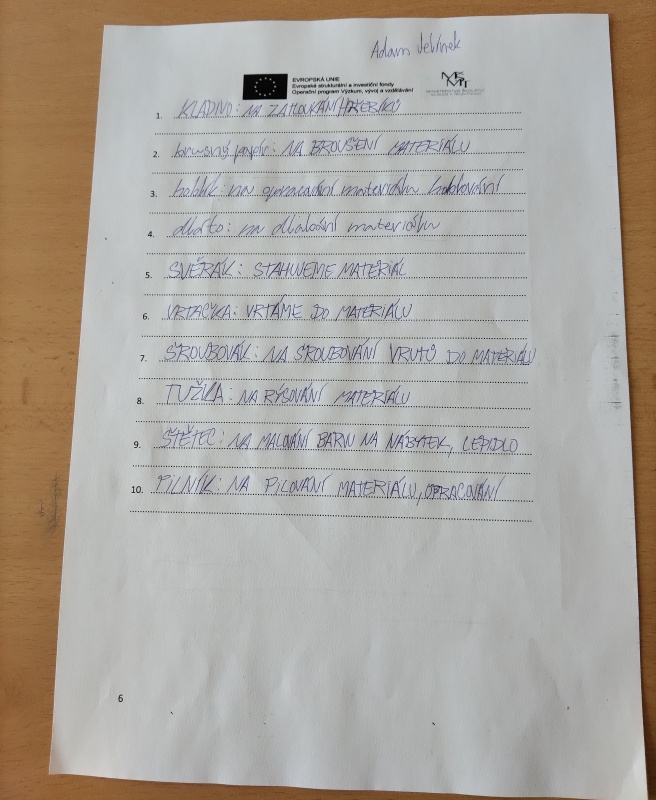 Adam Jelínek
EVROPSKÁ UNIE
Evropské strukturální a investiční fondy
Operační program Výzkum, vývoj a vzdělávání
1. KLADIVO: NA ZATLOUKÁNÍ HŘEBÍKŮ
2. brusný papír: NA BROUŠENÍ MATERIÁLU
3. hoblík: na opracování materiálu hoblování
4. dláto: na dlabání materiálu
5. SVĚRÁK: STAHUJEME MATERIÁL
6. VRTAČKA: VRTÁME DO MATERIÁLU
7. ŠROUBOVÁK: NA ŠROUBOVÁNÍ VRUTŮ DO MATERIÁLU
8. TUŽKA: NA RÝSOVÁNÍ MATERIÁLU
9. ŠTĚTEC: NA MALOVÁNÍ BARVU NA NÁBYTEK, LEPIDLO
10. PILNÍK: NA PILOVÁNÍ MATERIÁLU, OPRACOVÁNÍ
6